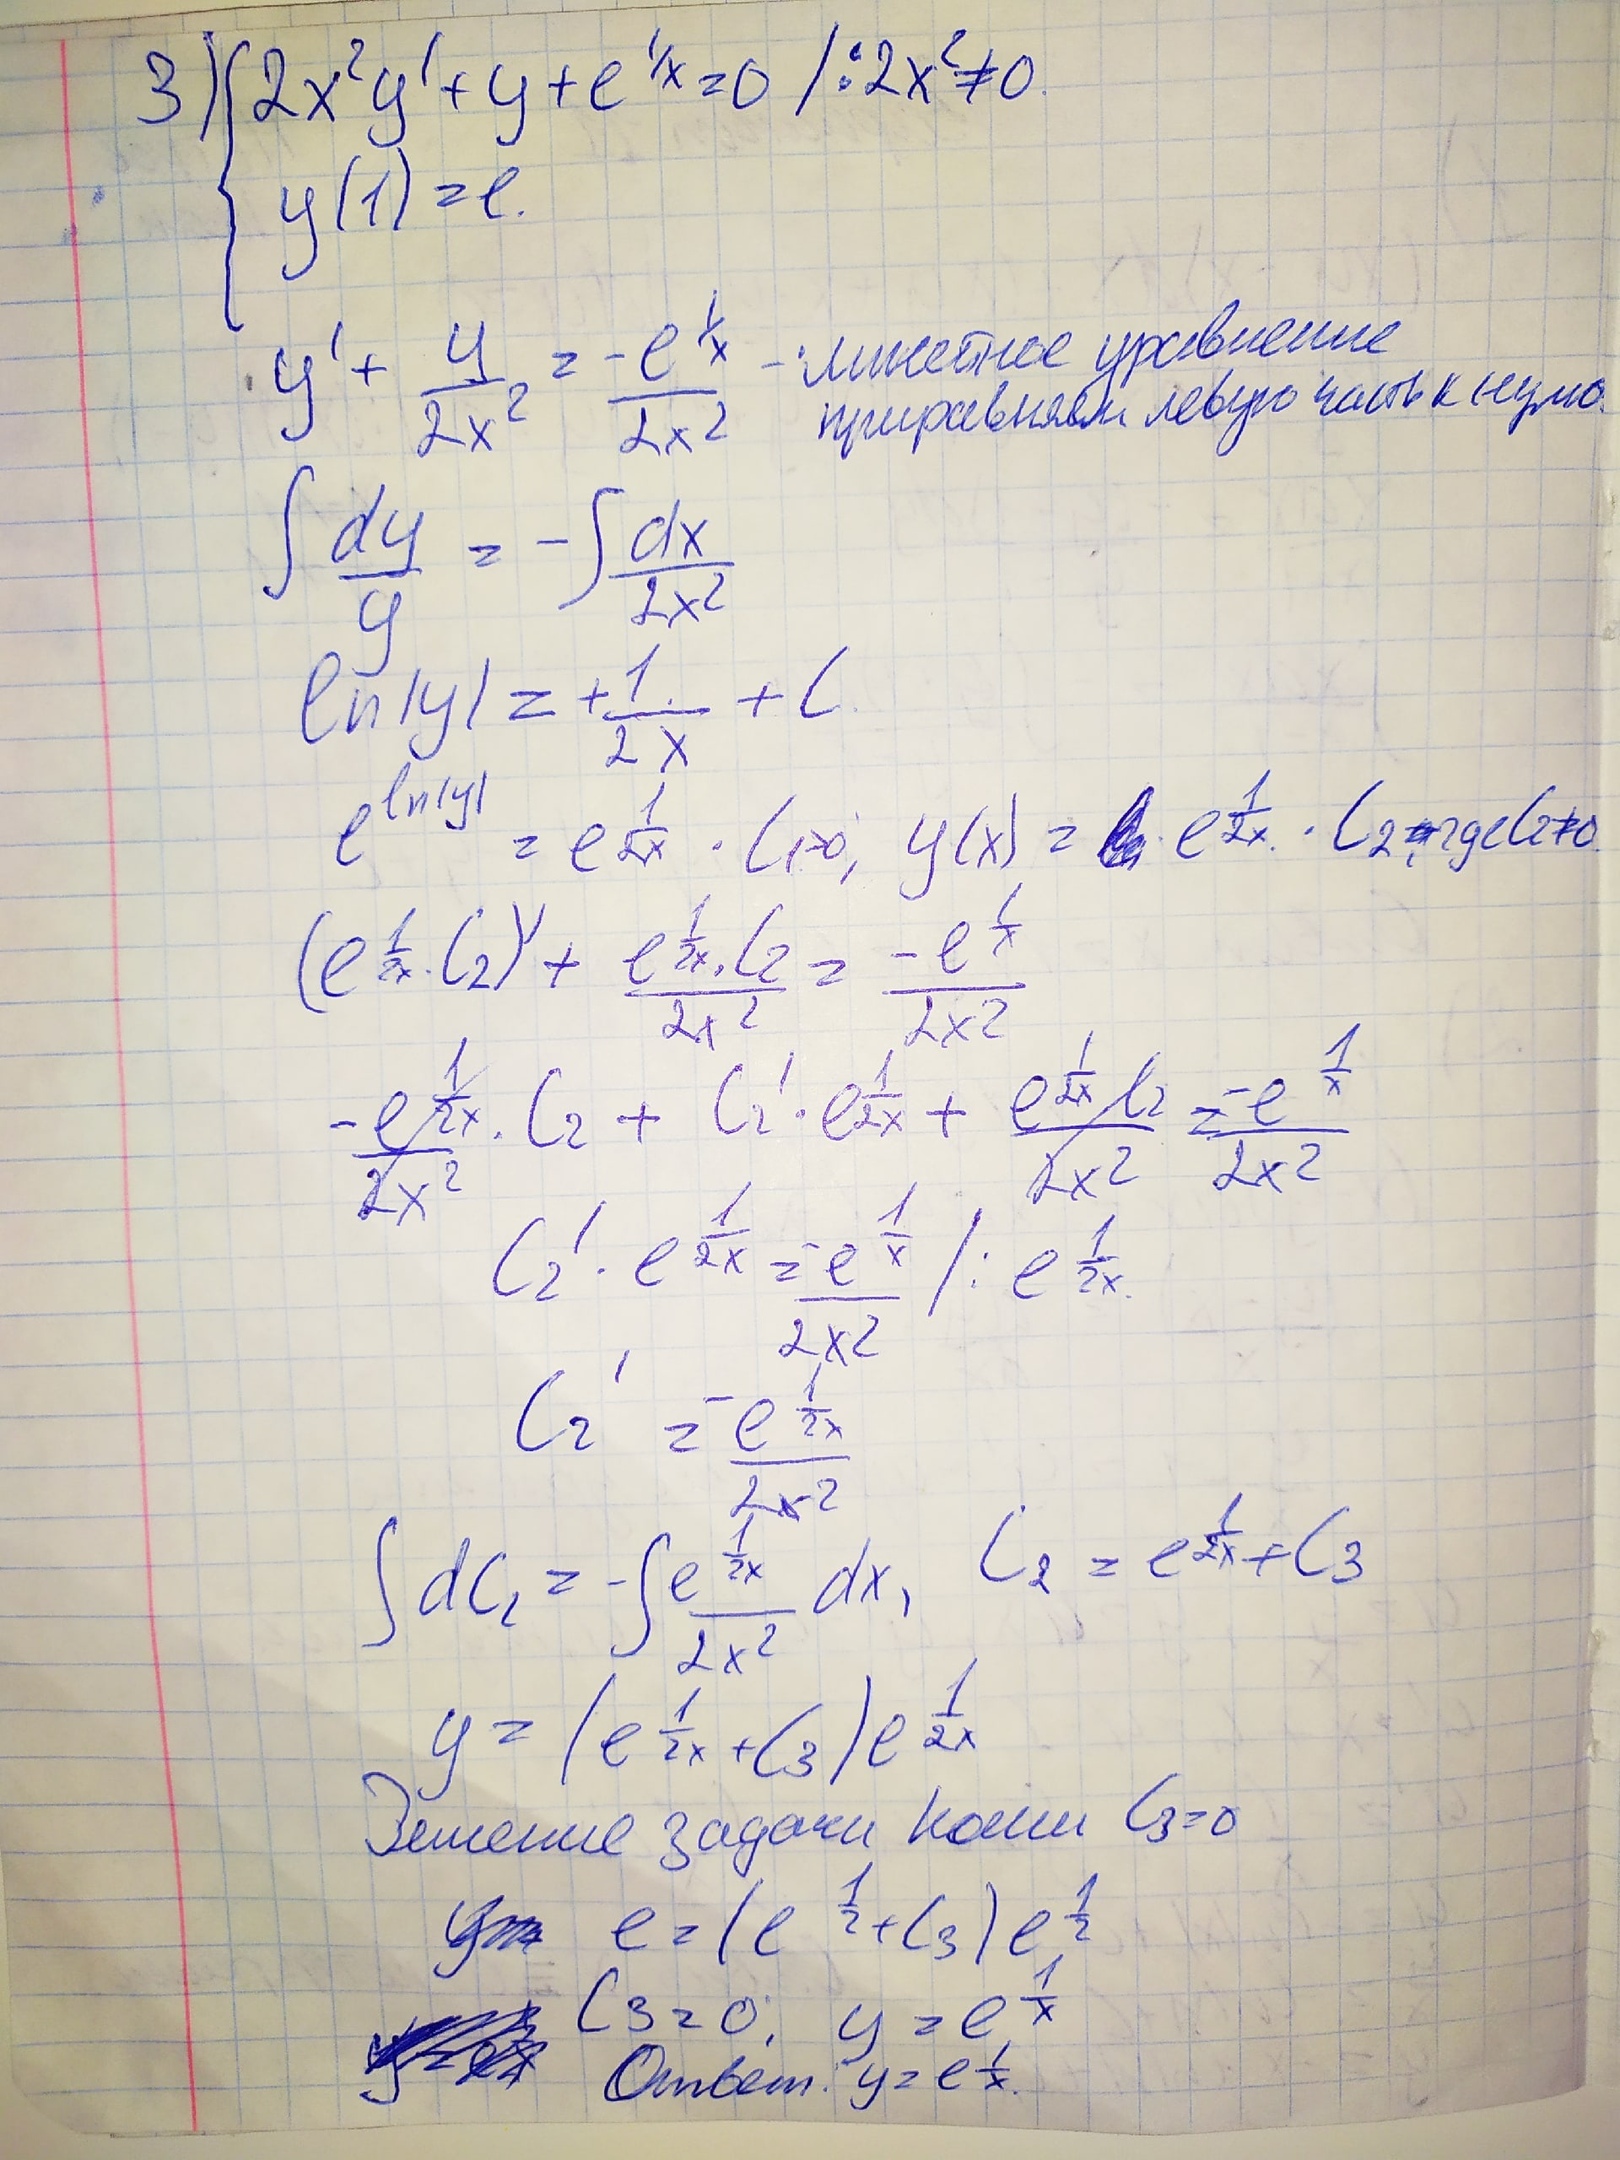 3) { 2x²y' + y + e^{1/x} = 0 /: 2x² ≠ 0.
y(1) = e.
y' + y/2x² = -e^{1/x}/2x² - линейное уравнение
приравняем левую часть к нулю.
∫ dy/y = -∫ dx/2x²
ln|y| = +1/2x + C.
e^{ln|y|} = e^{1/2x} · C₁>0; y(x) = e^{1/2x} · C₂, где C₂≠0.
(e^{1/2x} · C₂)' + e^{1/2x} · C₂/2x² = -e^{1/x}/2x²
-e^{1/2x}/2x² · C₂ + C₂' · e^{1/2x} + e^{1/2x} C₂/2x² = -e^{1/x}/2x²
C₂' · e^{1/2x} = -e^{1/x}/2x² /: e^{1/2x}.
C₂' = -e^{1/2x}/2x²
∫ dC₂ = -∫ e^{1/2x}/2x² dx, C₂ = e^{1/2x} + C₃
y = (e^{1/2x} + C₃) e^{1/2x}
Решение задачи Коши C₃ = 0
e = (e^{1/2} + C₃) e^{1/2}
C₃ = 0; y = e^{1/x}
Ответ: y = e^{1/x}.